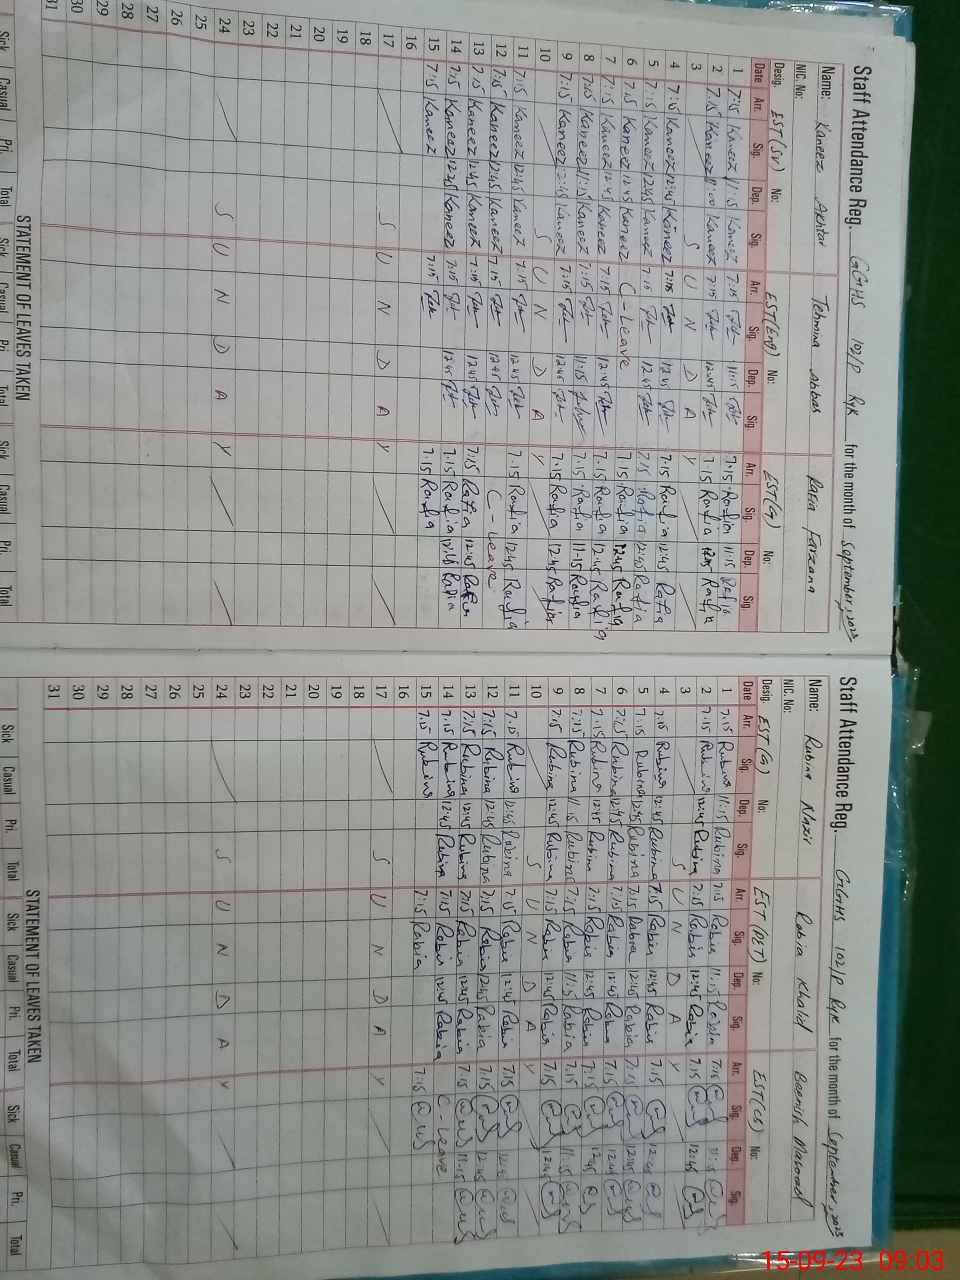 Staff Attendance Reg. GGHS 102/P Ryk for the month of September, 2023
Name: Kaneez Akhtar Tehmina Abbas Rafia Farzana
NIC. No:
Desig. EST(SV) No: EST(Eng) No: EST(G) No:
Date Arr. Sig. Dep. Sig. Arr. Sig. Dep. Sig. Arr. Sig. Dep. Sig.
1 7:15 Kaneez 11:15 Kaneez 7:15 11:15 7:15 Rafia 11:15 Rafia
2 7:15 Kaneez Kaneez 7:15 12:45 7:15 Rafia 12:45 Rafia
3 S U N D A Y
4 7:15 Kaneez 12:45 Kaneez 7:15 12:45 7:15 Rafia 12:45 Rafia
5 7:15 Kaneez 12:45 Kaneez 7:15 12:45 7:15 Rafia 12:45 Rafia
6 7:15 Kaneez 12:45 Kaneez C-Leave 7:15 Rafia 12:45 Rafia
7 7:15 Kaneez 12:45 Kaneez 7:15 12:45 7:15 Rafia 12:45 Rafia
8 7:15 Kaneez 11:15 Kaneez 7:15 11:15 7:15 Rafia 11:15 Rafia
9 7:15 Kaneez 12:45 Kaneez 7:15 12:45 7:15 Rafia 12:45 Rafia
10 S U N D A Y
11 7:15 Kaneez 12:45 Kaneez 7:15 12:45 7:15 Rafia 12:45 Rafia
12 7:15 Kaneez 12:45 Kaneez 7:15 12:45 C-Leave
13 7:15 Kaneez 12:45 Kaneez 7:15 12:45 7:15 Rafia 12:45 Rafia
14 7:15 Kaneez 12:45 Kaneez 7:15 12:45 7:15 Rafia Rafia
15 7:15 Kaneez 7:15 7:15 Rafia
16
17 S U N D A Y
18
19
20
21
22
23
24 S U N D A Y
25
26
27
28
29
30
31
STATEMENT OF LEAVES TAKEN
Sick Casual Pri. Total Sick Casual Pri. Total Sick Casual Pri. Total
Staff Attendance Reg. GGHS 102/P Ryk for the month of September, 2023
Name: Rubina Nazir Rabia Khalid Beenish Masood
NIC. No:
Desig. EST(G) No: EST(PET) No: EST(CS) No:
Date Arr. Sig. Dep. Sig. Arr. Sig. Dep. Sig. Arr. Sig. Dep. Sig.
1 7:15 Rubina 11:15 Rubina 7:15 Rabia 11:15 Rabia 7:15 11:15
2 7:15 Rubina 12:45 Rubina 7:15 Rabia 12:45 Rabia 7:15 12:45
3 S U N D A Y
4 7:15 Rubina 12:45 Rubina 7:15 Rabia 12:45 Rabia 7:15 12:45
5 7:15 Rubina 12:45 Rubina 7:15 Rabia 12:45 Rabia 7:15 12:45
6 7:15 Rubina 12:45 Rubina 7:15 Rabia 12:45 Rabia 7:15 12:45
7 7:15 Rubina 12:45 Rubina 7:15 Rabia 12:45 Rabia 7:15 12:45
8 7:15 Rubina 11:15 Rubina 7:15 Rabia 11:15 Rabia 7:15 11:15
9 7:15 Rubina 12:45 Rubina 7:15 Rabia 12:45 Rabia 7:15 12:45
10 S U N D A Y
11 7:15 Rubina 12:45 Rubina 7:15 Rabia 12:45 Rabia 7:15 12:45
12 7:15 Rubina 12:45 Rubina 7:15 Rabia 12:45 Rabia 7:15 12:45
13 7:15 Rubina 12:45 Rubina 7:15 Rabia 12:45 Rabia 7:15 11:15
14 7:15 Rubina 12:45 Rubina 7:15 Rabia 12:45 Rabia C-Leave
15 7:15 Rubina 7:15 Rabia 7:15
16
17 S U N D A Y
18
19
20
21
22
23
24 S U N D A Y
25
26
27
28
29
30
31
STATEMENT OF LEAVES TAKEN
Sick Casual Pri. Total Sick Casual Pri. Total Sick Casual Pri. Total
15-09-23 09:03